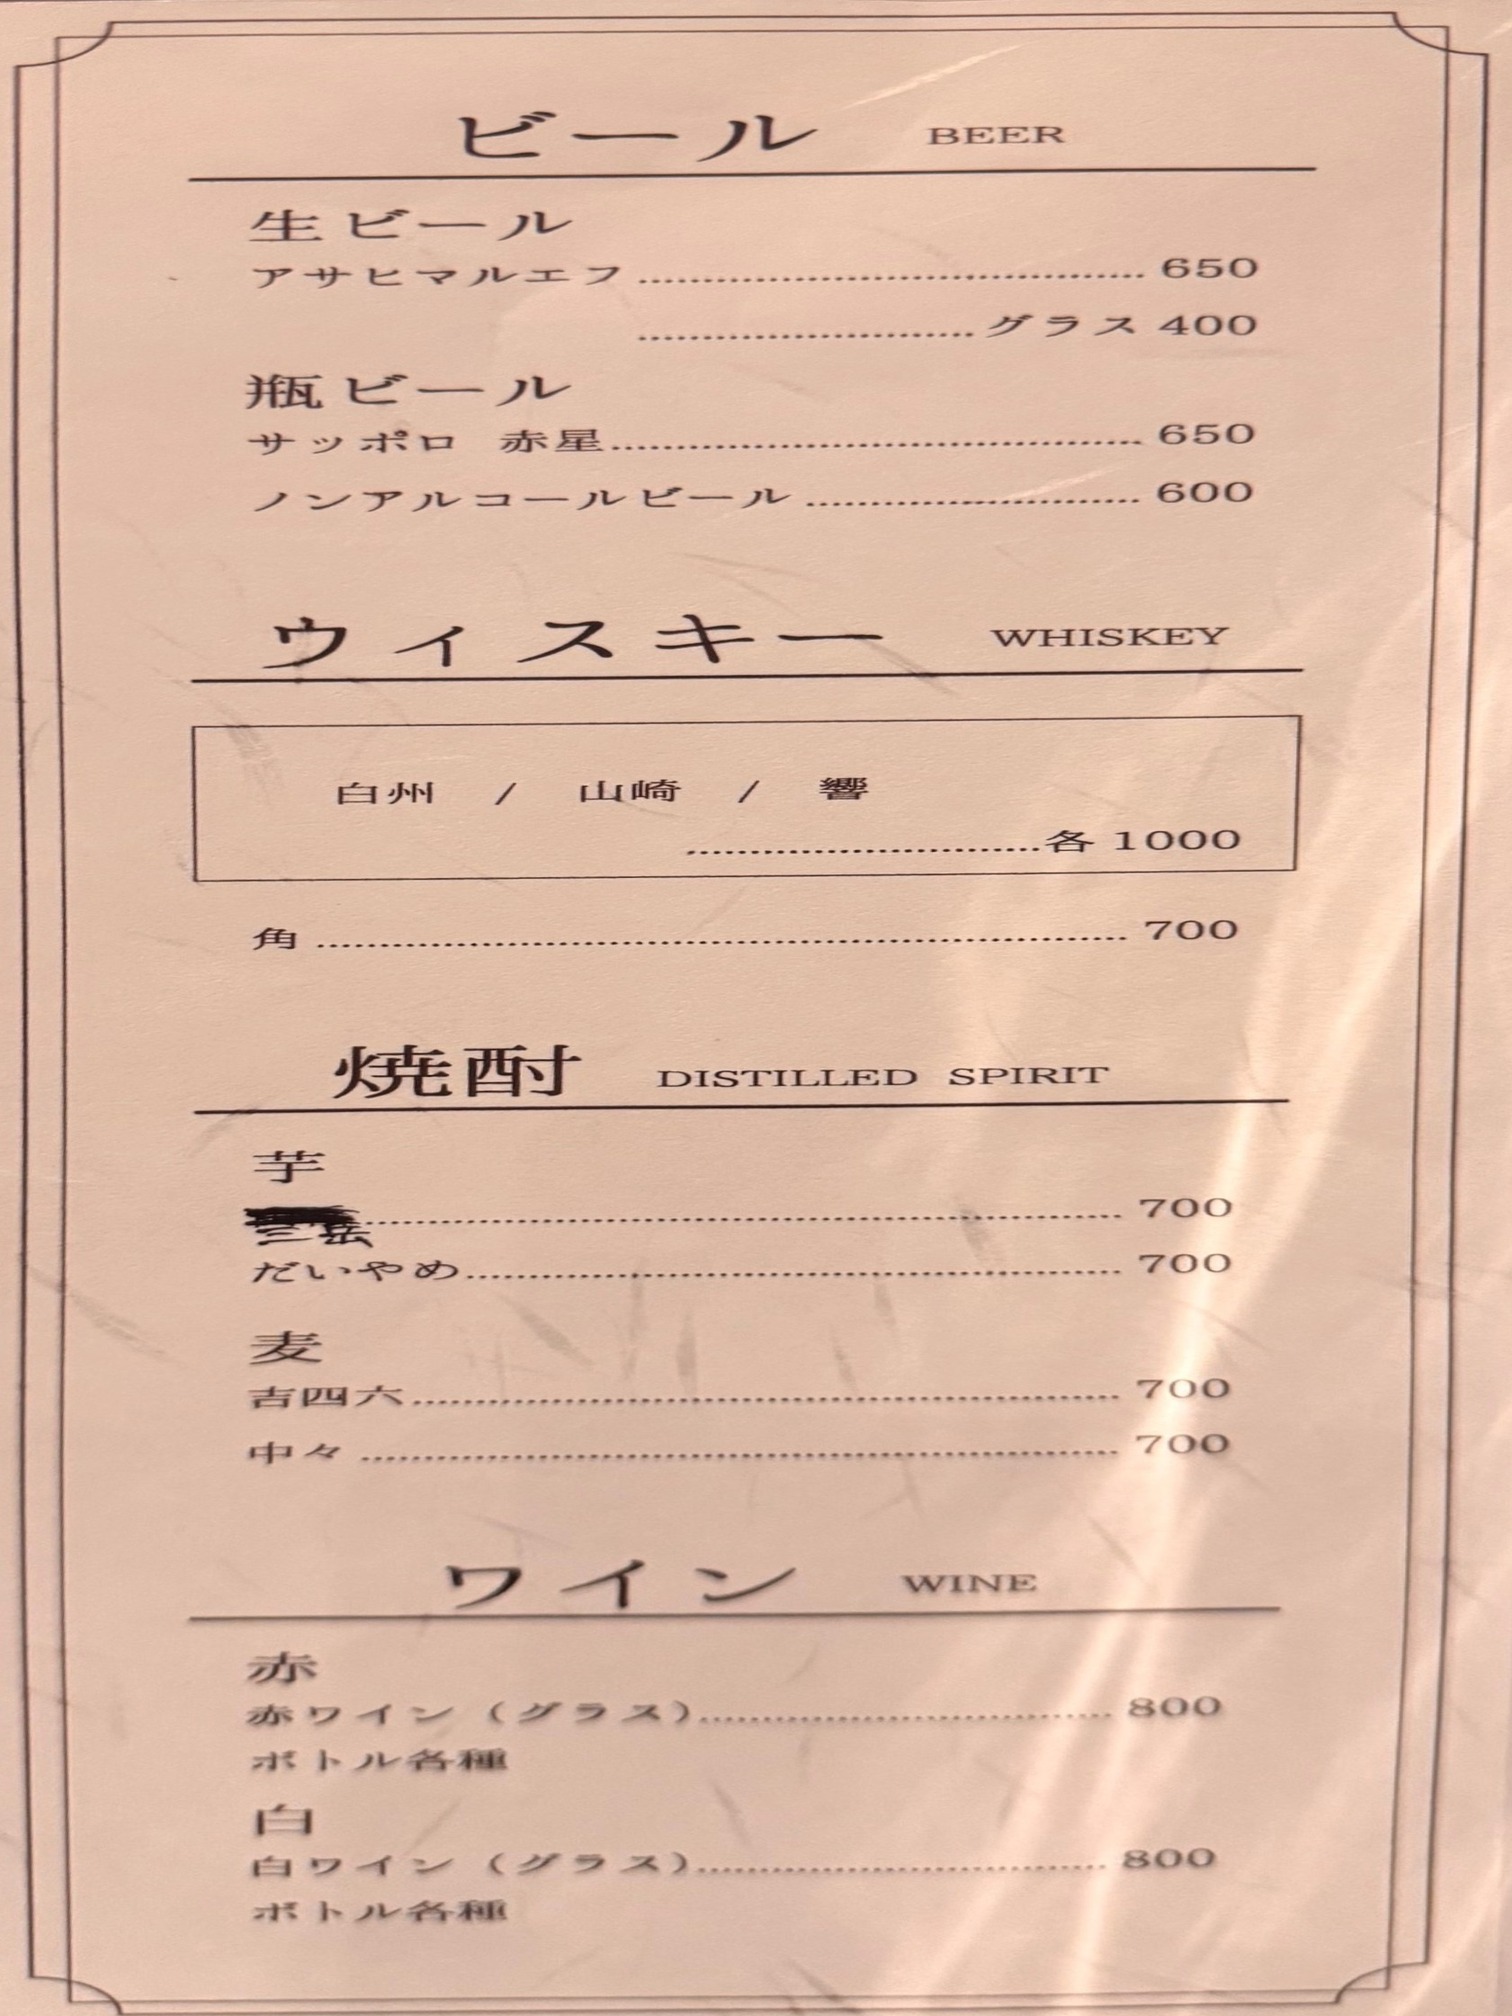 ビール BEER
生ビール
アサヒマルエフ........................................ 650
..........................グラス 400
瓶ビール
サッポロ 赤星.......................................... 650
ノンアルコールビール .......................... 600
ウィスキー WHISKEY
白州 / 山崎 / 響
............................各 1000
角 ................................................................ 700
焼酎 DISTILLED SPIRIT
芋
............................................................ 700
三岳
だいやめ.................................................... 700
麦
吉四六........................................................ 700
中々 ............................................................ 700
ワイン WINE
赤
赤ワイン（グラス）................................ 800
ボトル各種
白
白ワイン（グラス）................................ 800
ボトル各種